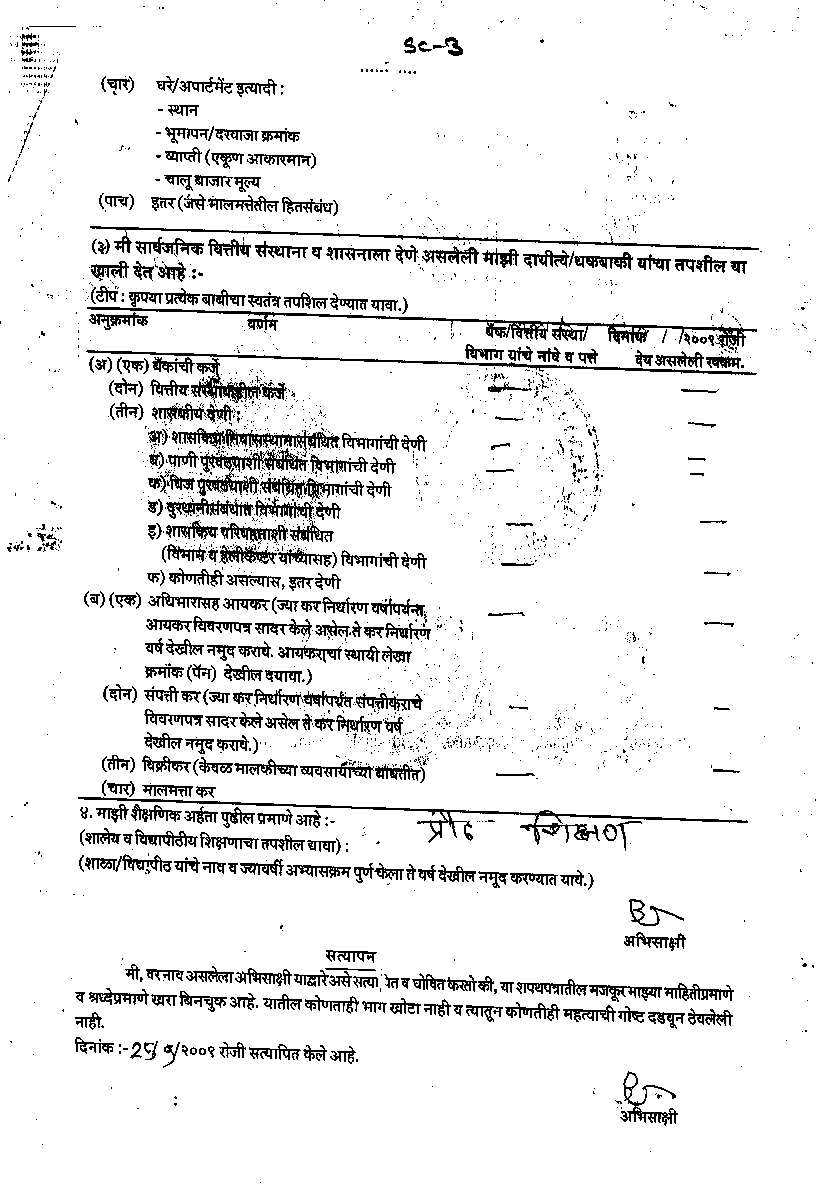 SC-3
(चार) घरे/अपार्टमेंट इत्यादी :
- स्थान
- भूमापन/दरवाजा क्रमांक
- व्याप्ती (एकूण आकारमान)
- चालू बाजार मूल्य
(पाच) इतर (जसे मालमत्तेतील हितसंबंध)
(३) मी सार्वजनिक वित्तीय संस्थाना व शासनाला देणे असलेली माझी दायीत्ये/थकबाकी यांचा तपशील या
खाली देत आहे :-
(टीप : कृपया प्रत्येक बाबीचा स्वतंत्र तपशिल देण्यात यावा.)
अनुक्रमांक वर्णम बँक/वित्तीय संस्था/ दिनांक / /२००९ रोजी
विभाग यांचे नांवे व पत्ते देय असलेली रक्कम.
(अ) (एक) बँकांची कर्जे
(दोन) वित्तीय संस्थाकडील कर्जे
(तीन) शासकीय देणी :
अ) शासकिय निवासस्थानासंबंधित विभागांची देणी
ब) पाणी पुरवठ्याशी संबंधित विभागांची देणी
क) विज पुरवठ्याशी संबंधित विभागांची देणी
ड) दुरध्वनीसंबंधात विभागांची देणी
इ) शासकिय परिवहनाशी संबंधित
(विमान व हेलीकॅप्टर यांच्यासह) विभागांची देणी
फ) कोणतीही असल्यास, इतर देणी
(ब) (एक) अधिभारासह आयकर (ज्या कर निर्धारण वर्षापर्यन्त
आयकर विवरणपत्र सादर केले असेल ते कर निर्धारण
वर्ष देखील नमुद करावे. आयकराचा स्थायी लेखा
क्रमांक (पॅन) देखील दयावा.)
(दोन) संपत्ती कर (ज्या कर निर्धारण वर्षापर्यंत संपत्तीकराचे
विवरणपत्र सादर केले असेल ते कर निर्धारण वर्ष
देखील नमूद करावे.)
(तीन) विक्रीकर (केवळ मालकीच्या व्यवसायाच्या बाबतीत)
(चार) मालमत्ता कर
४. माझी शैक्षणिक अर्हता पुढील प्रमाणे आहे :- प्रौढ शिक्षण
(शालेय व विद्यापीठीय शिक्षणाचा तपशील द्यावा) :
(शाळा/विद्यापीठ यांचे नाव व ज्यावर्षी अभ्यासक्रम पुर्ण केला ते वर्ष देखील नमूद करण्यात यावे.)
अभिसाक्षी
सत्यापन
मी, वर नाव असलेला अभिसाक्षी याद्वारे असे सत्यापीत व घोषित करतो की, या शपथपत्रातील मजकूर माझ्या माहितीप्रमाणे
व श्रध्देप्रमाणे खरा बिनचुक आहे. यातील कोणताही भाग खोटा नाही व त्यातून कोणतीही महत्याची गोष्ट दडयून ठेवलेली
नाही.
दिनांक :- /२००९ रोजी सत्यापित केले आहे.
अभिसाक्षी